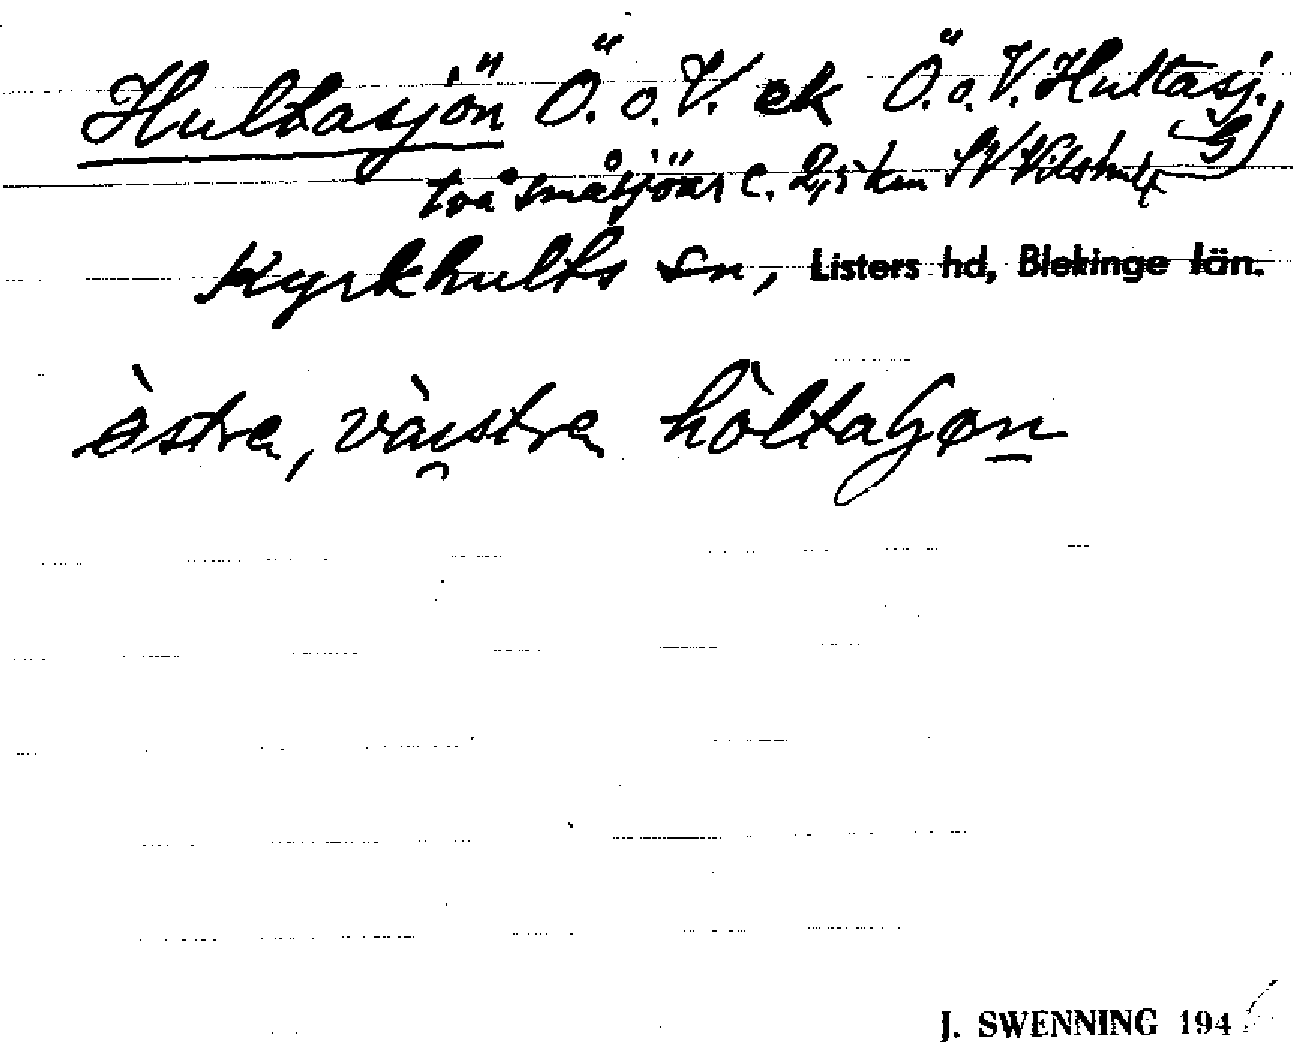 Hultasjön Ö. o. V. ek Ö. o. V. Hultasj.
två småsjöar c. 2,5 km SV Vilshult
Kyrkhults sn, Listers hd, Blekinge län.
östra, västra
J. SWENNING 194